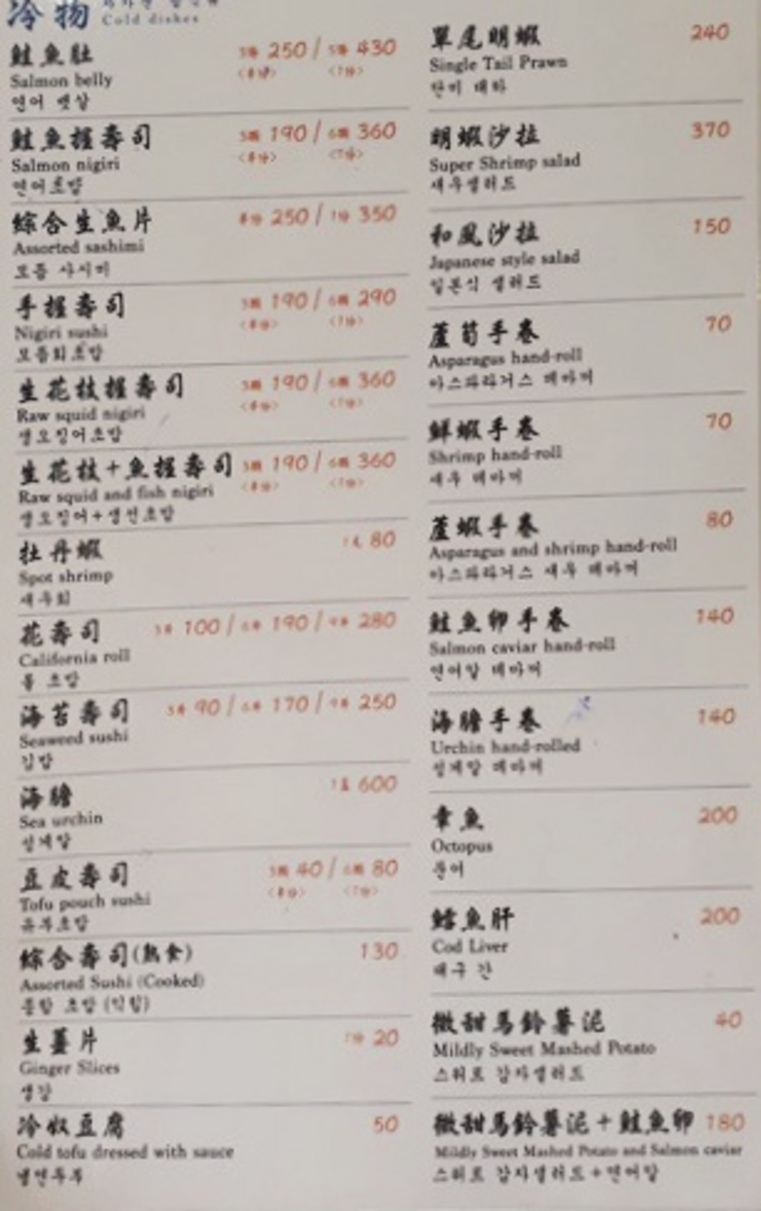 冷物
Cold dishes
鮭魚肚 250 / 430
Salmon belly
연어 뱃살
鮭魚握壽司 3顆 190 / 6顆 360
Salmon nigiri
연어초밥
綜合生魚片 250 / 350
Assorted sashimi
모듬 사시미
手握壽司 3顆 190 / 6顆 290
Nigiri sushi
모듬회초밥
生花枝握壽司 3顆 190 / 6顆 360
Raw squid nigiri
생오징어초밥
生花枝+魚握壽司 3顆 190 / 6顆 360
Raw squid and fish nigiri
생오징어+생선초밥
牡丹蝦 80
Spot shrimp
새우회
花壽司 100 / 190 / 280
California roll
롤 초밥
海苔壽司 90 / 170 / 250
Seaweed sushi
김밥
海膽 600
Sea urchin
성게알
豆皮壽司 3顆 40 / 6顆 80
Tofu pouch sushi
유부초밥
綜合壽司(熟食) 130
Assorted Sushi (Cooked)
종합 초밥 (익힘)
生薑片 20
Ginger Slices
생강
冷奴豆腐 50
Cold tofu dressed with sauce
냉연두부
單尾明蝦 240
Single Tail Prawn
단미 대하
明蝦沙拉 370
Super Shrimp salad
새우샐러드
和風沙拉 150
Japanese style salad
일본식 샐러드
蘆筍手卷 70
Asparagus hand-roll
아스파라거스 데마끼
鮮蝦手卷 70
Shrimp hand-roll
새우 데마끼
蘆蝦手卷 80
Asparagus and shrimp hand-roll
아스파라거스 새우 데마끼
鮭魚卵手卷 140
Salmon caviar hand-roll
연어알 데마끼
海膽手卷 140
Urchin hand-rolled
성게알 데마끼
章魚 200
Octopus
문어
鱈魚肝 200
Cod Liver
대구 간
微甜馬鈴薯泥 40
Mildly Sweet Mashed Potato
스위트 감자샐러드
微甜馬鈴薯泥+鮭魚卵 180
Mildly Sweet Mashed Potato and Salmon caviar
스위트 감자샐러드+연어알